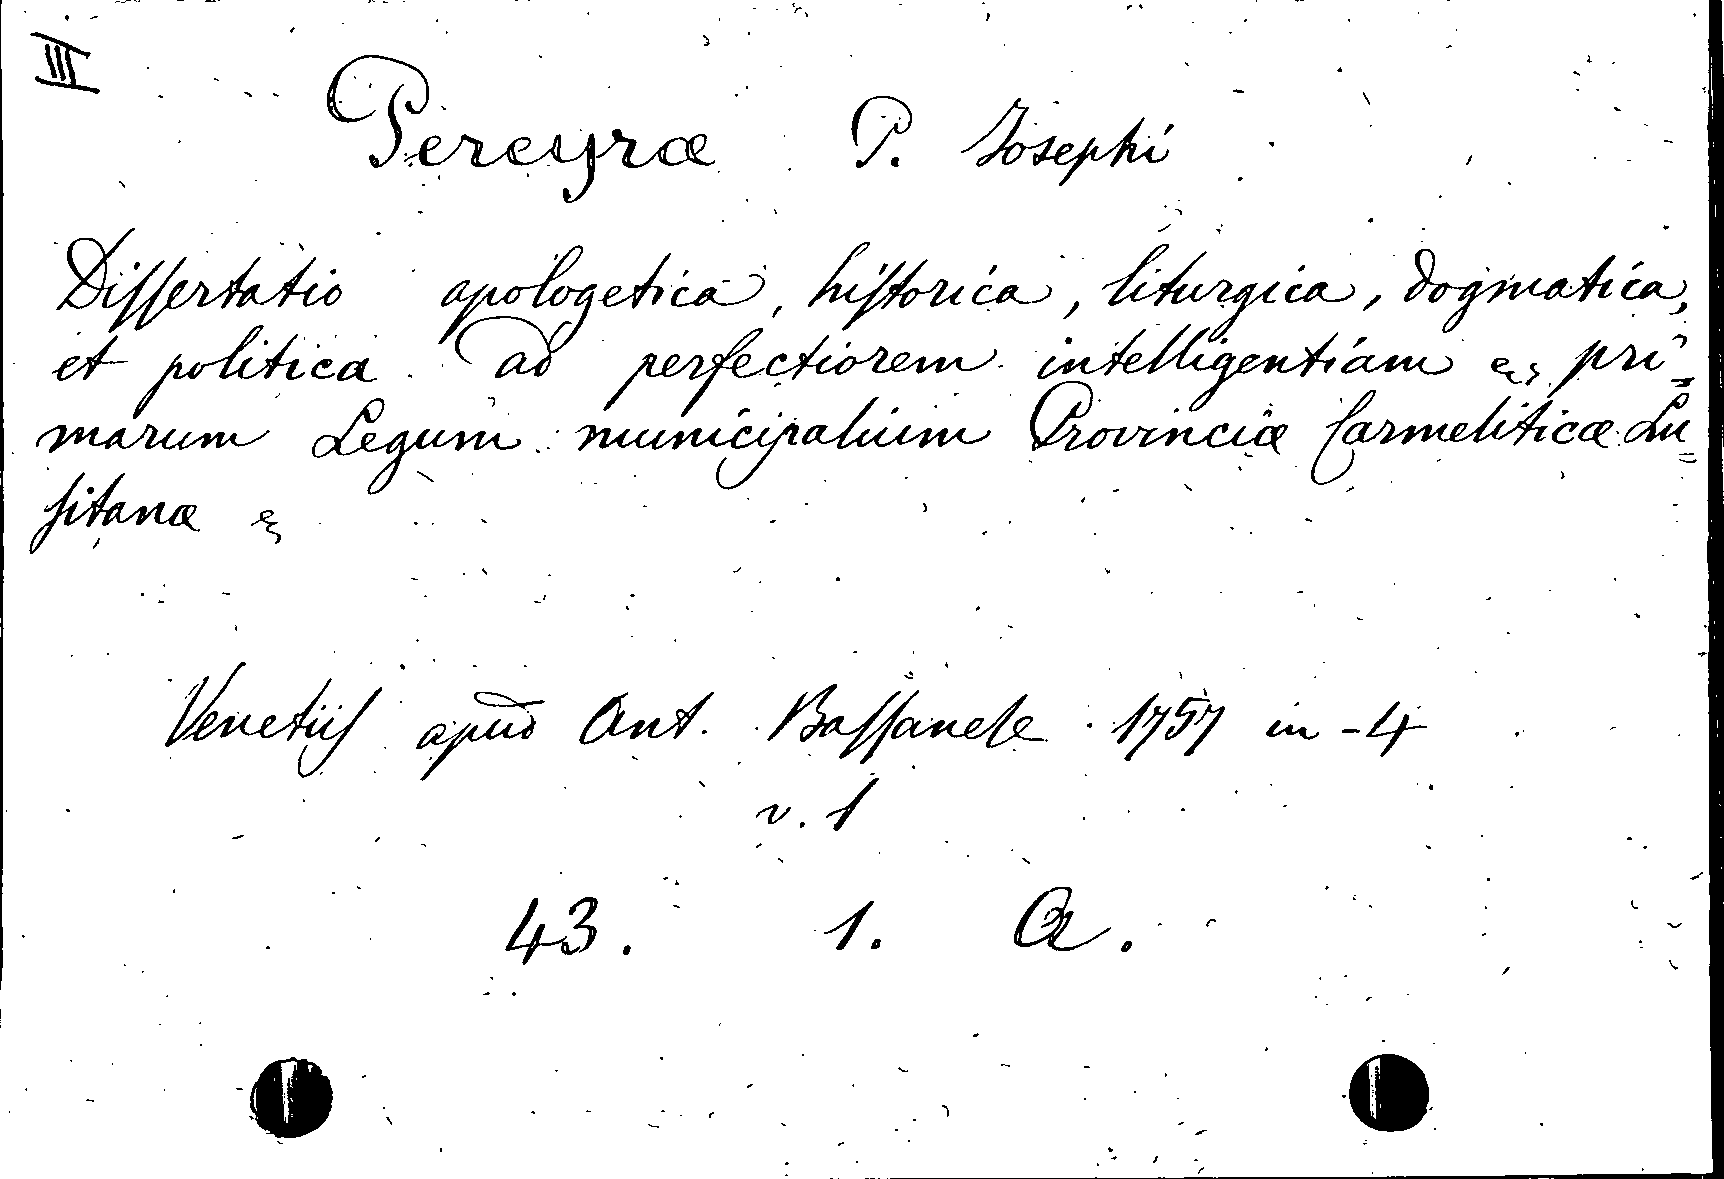 III
Pereyræ P. Josephi
Dissertatio apologetica, historica, liturgica, dogmatica,
et politica ad perfectiorem intelligentiam &, pri=
marum Legum municipalium Provinciæ Carmeliticæ Lu=
sitanæ &
Venetiis apud Ant. Bassanese 1757 in-4
v. 1
43. 1. A.